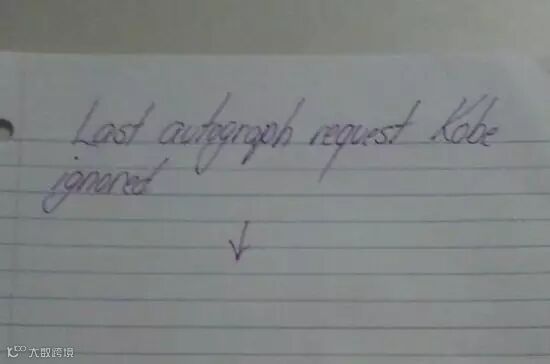 Last autograph request Kobe
ignored
↓
大数跨境